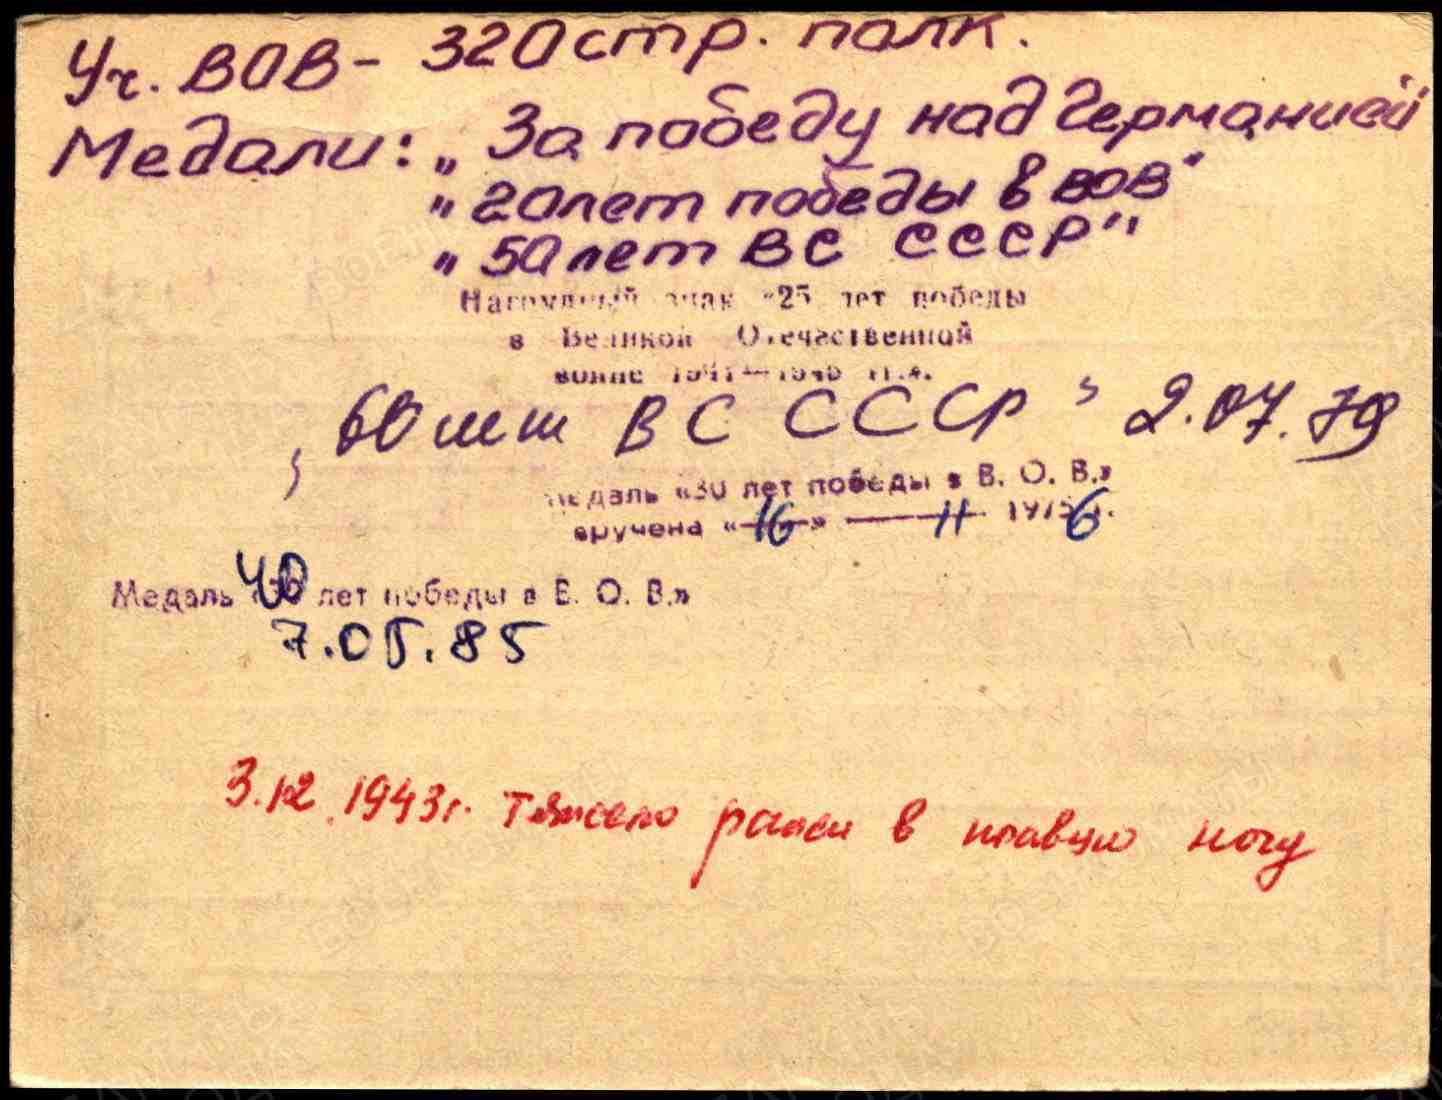 Уч. ВОВ - 320 стр. полк.
Медали: „За победу над Германией
„20 лет победы в ВОВ"
„50 лет ВС СССР"
Нагрудный знак «25 лет победы
в Великой Отечественной
войне 1941—1945 гг.».
„60 лет ВС СССР" 2.07.79
Медаль «30 лет победы в В. О. В.»
вручена «16» 11 1976 г.
Медаль «40 лет победы в В. О. В.»
7.05.85
3.12.1943г. тяжело ранен в правую ногу